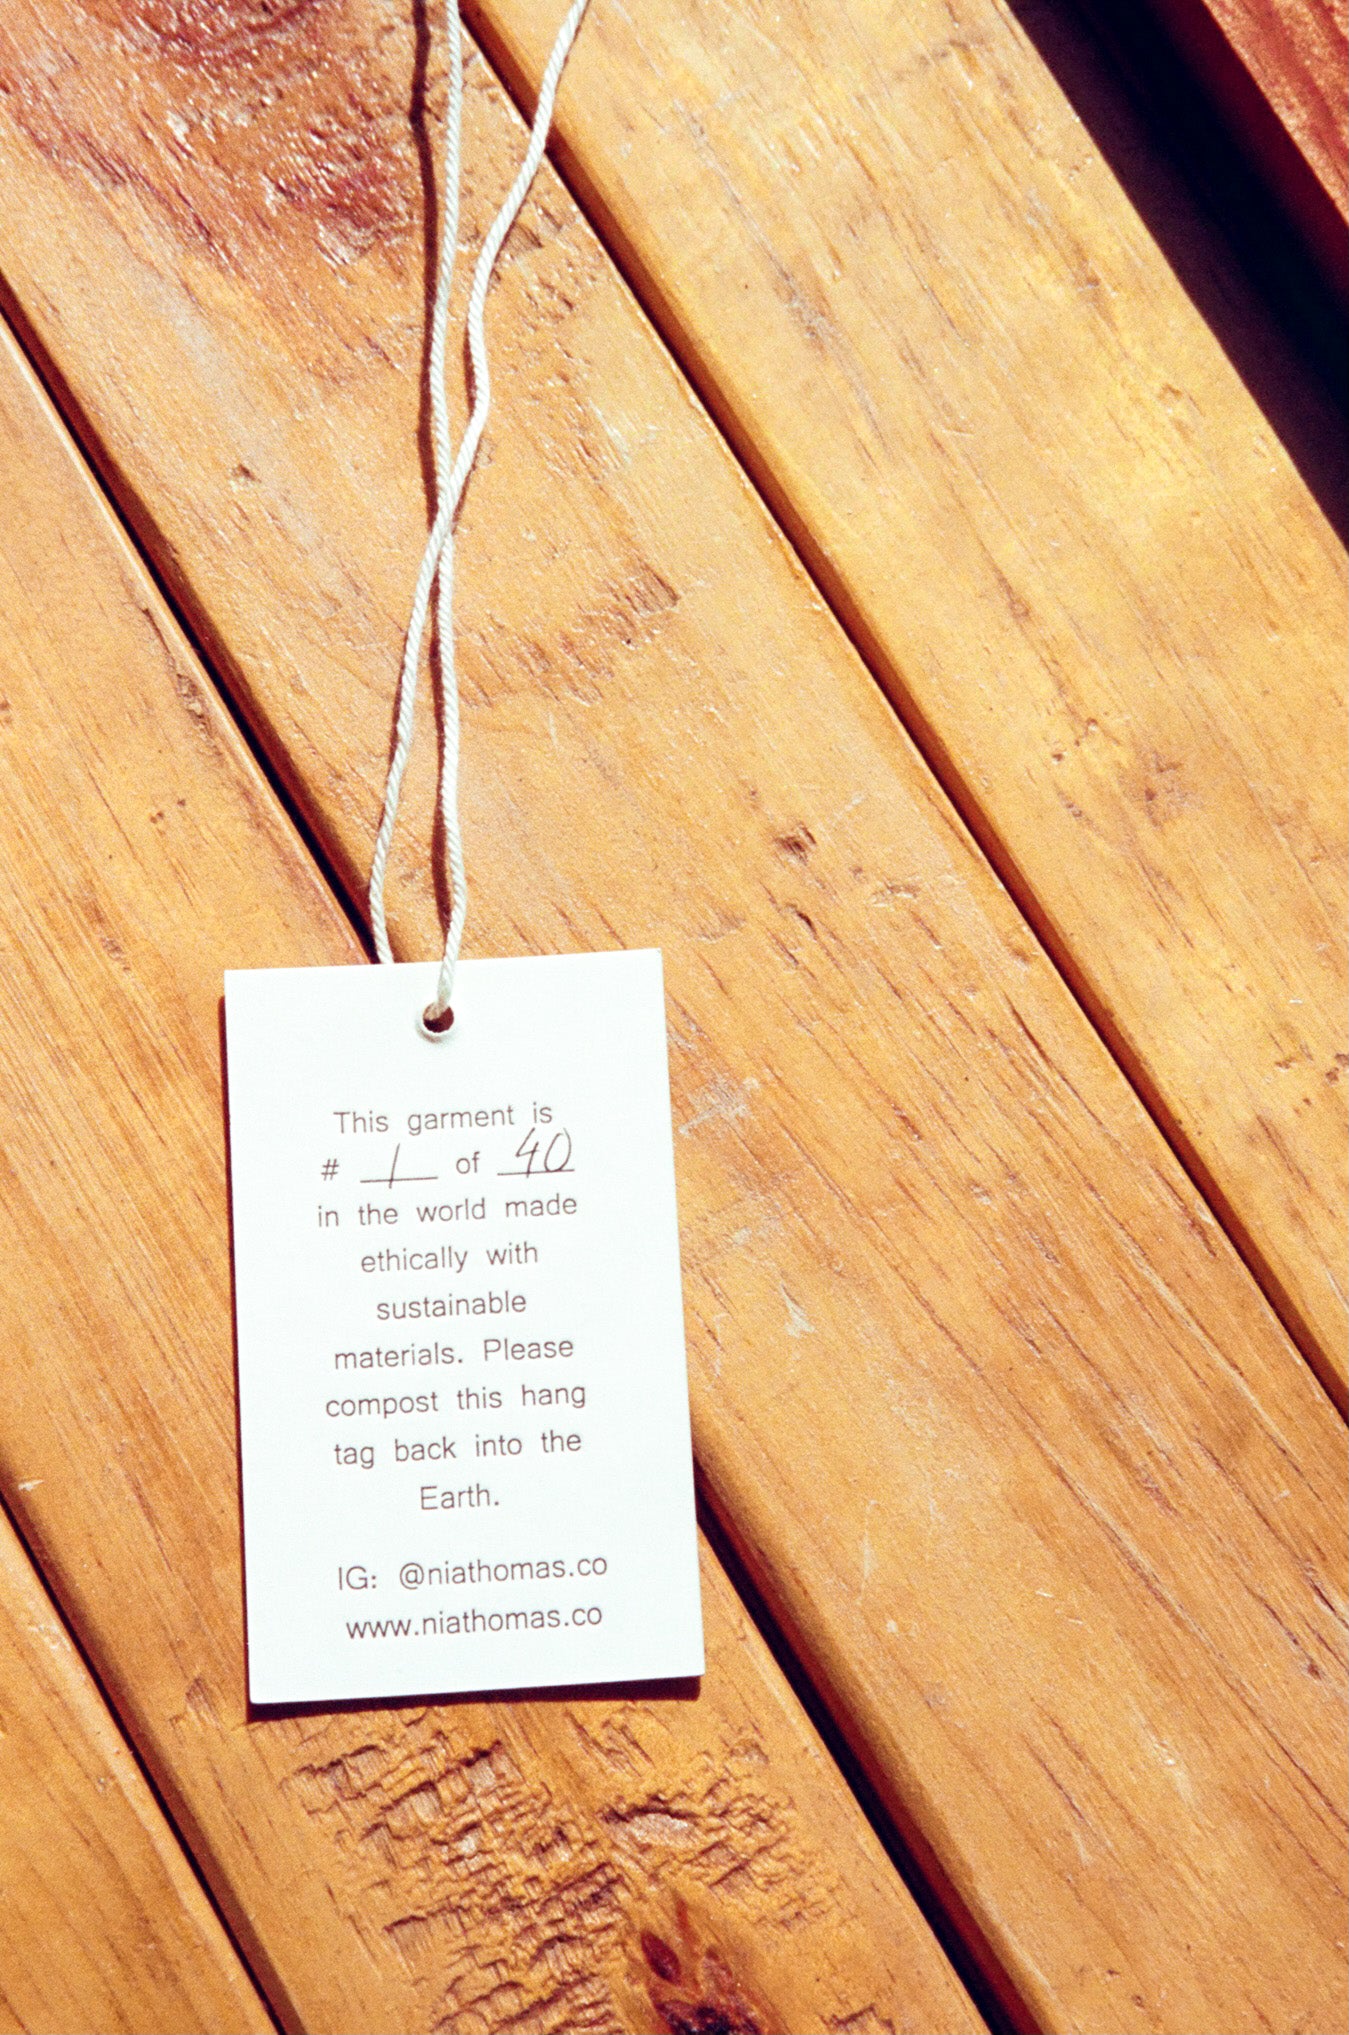 This garment is
# 1 of 40
in the world made
ethically with
sustainable
materials. Please
compost this hang
tag back into the
Earth.
IG: @niathomas.co
www.niathomas.co